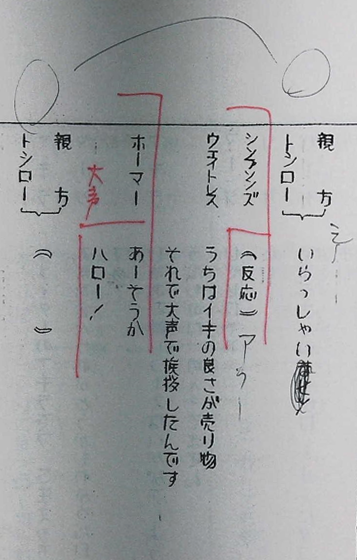 親方
トシロー いらっしゃい
シンプソンズ （反応）
ウェイトレス うちはイキの良さが売り物
それで大声で挨拶したんです
ホーマー あーそうか
大声 ハロー！
親方
トシロー （　　）